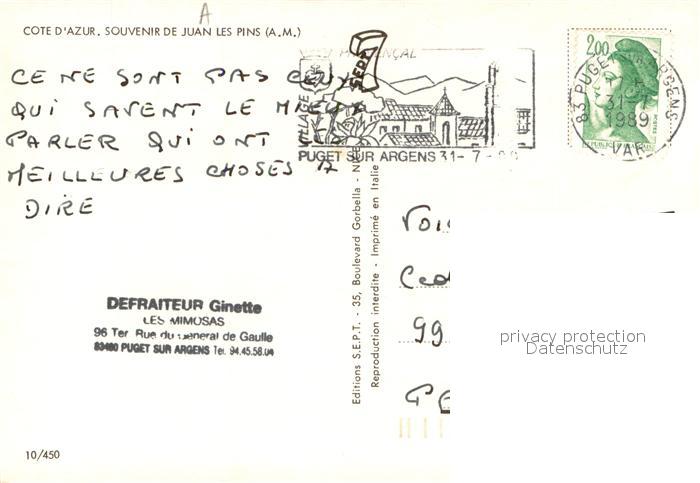 A
COTE D'AZUR. SOUVENIR DE JUAN LES PINS (A.M.)
CE NE SONT PAS CEUX
QUI SAVENT LE MIEUX
PARLER QUI ONT LES
MEILLEURES CHOSES A
DIRE
SEPT
VILLAGE
PUGET SUR ARGENS 31-7-
2,00
POSTES
83 PUGET SUR ARGENS
31-7
1989
VAR
DEFRAITEUR Ginette
LES MIMOSAS
96 Ter Rue du General de Gaulle
83480 PUGET SUR ARGENS Tel. 94.45.58.04
Editions S.E.P.T. - 35, Boulevard Gorbella - NICE
Reproduction interdite - Imprimé en Italie
99
privacy protection
Datenschutz
10/450